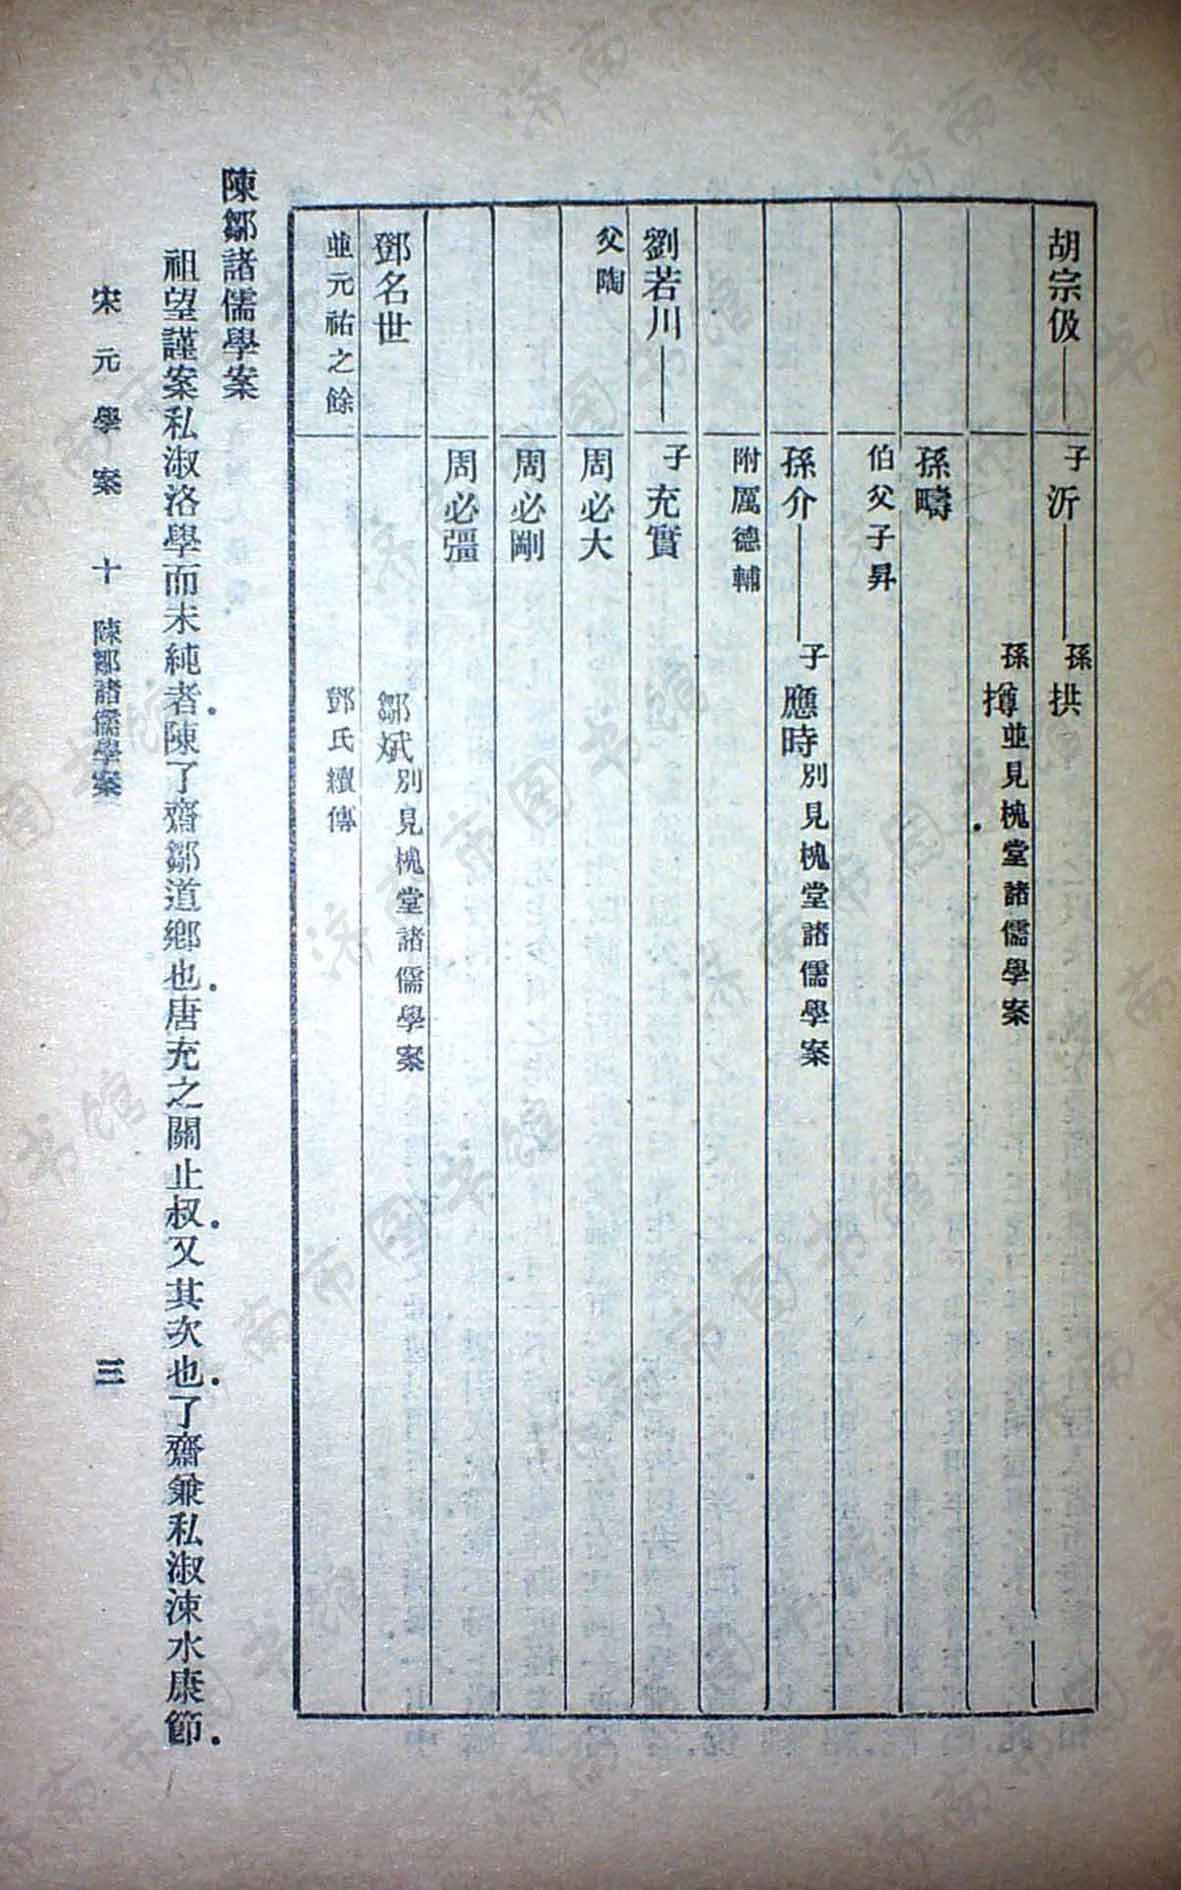 胡宗伋——子沂——孫拱
孫撙並見槐堂諸儒學案
孫疇
伯父子昇
孫介——子應時別見槐堂諸儒學案
附厲德輔
劉若川——子充實
父陶
周必大
周必剛
周必彊
鄧名世
鄒斌別見槐堂諸儒學案
並元祐之餘
鄧氏續傳
陳鄒諸儒學案
祖望謹案私淑洛學而未純者陳了齋鄒道鄉也唐充之關止叔又其次也了齋兼私淑涑水康節
宋元學案 十 陳鄒諸儒學案 三
济南市图书馆